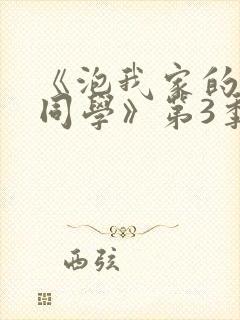 《泡我家的
同學》第3季
西弦